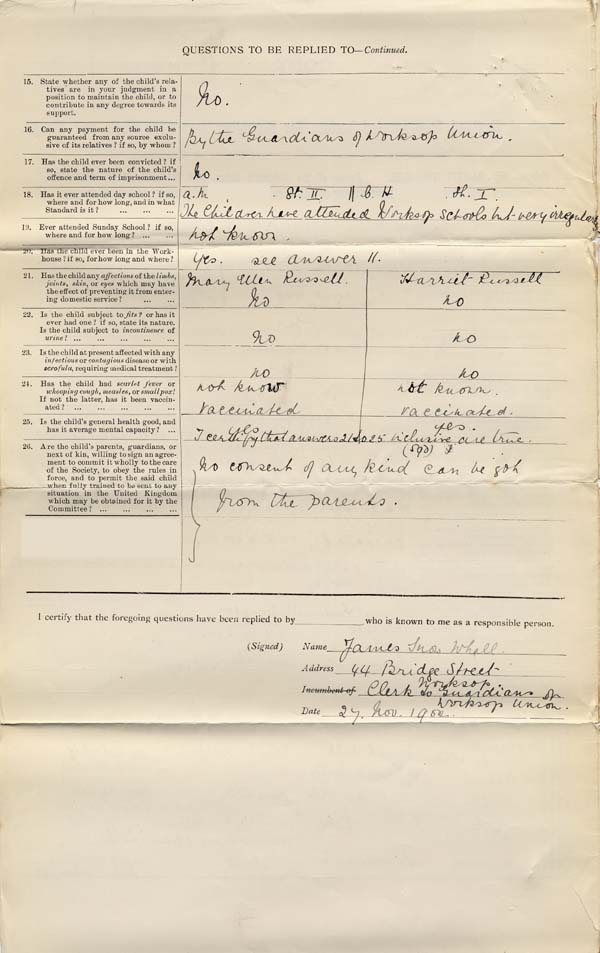 QUESTIONS TO BE REPLIED TO—Continued.
15. State whether any of the child's rela-
tives are in your judgment in a
position to maintain the child, or to
contribute in any degree towards its
support.
No.
16. Can any payment for the child be
guaranteed from any source exclu-
sive of its relatives? if so, by whom?
By the Guardians of Worksop Union.
17. Has the child ever been convicted? if
so, state the nature of the child's
offence and term of imprisonment...
No.
18. Has it ever attended day school? if so,
where and for how long, and in what
Standard is it? ... ... ...
St. II. St. I.
The Children have attended Worksop Schools but very irregularly
19. Ever attended Sunday School? if so,
where and for how long? ... ...
not known.
20. Has the child ever been in the Work-
house? if so, for how long and where?
Yes. see answer 11.
21. Has the child any affections of the limbs,
joints, skin, or eyes which may have
the effect of preventing it from enter-
ing domestic service? ... ...
Mary Ellen Russell. Harriet Russell
No no
22. Is the child subject to fits? or has it
ever had one? if so, state its nature.
Is the child subject to incontinence of
urine? ... ... ... ... ...
No no
23. Is the child at present affected with any
infectious or contagious disease or with
scrofula, requiring medical treatment?
no no
24. Has the child had scarlet fever or
whooping cough, measles, or small pox?
If not the latter, has it been vaccin-
ated? ... ... ... ... ...
not know not known.
Vaccinated vaccinated.
25. Is the child's general health good, and
has it average mental capacity? ...
yes yes.
I certify that answers 21 to 25 inclusive are true.
26. Are the child's parents, guardians, or
next of kin, willing to sign an agree-
ment to commit it wholly to the care
of the Society, to obey the rules in
force, and to permit the said child
when fully trained to be sent to any
situation in the United Kingdom
which may be obtained for it by the
Committee? ... ... ... ...
No consent of any kind can be got
from the parents.
I certify that the foregoing questions have been replied to by who is known to me as a responsible person.
(Signed) Name James Snow Whall
Address 44 Bridge Street
Worksop.
Incumbent of Clerk to Guardians of
Worksop Union.
Date 27. Nov. 1902.